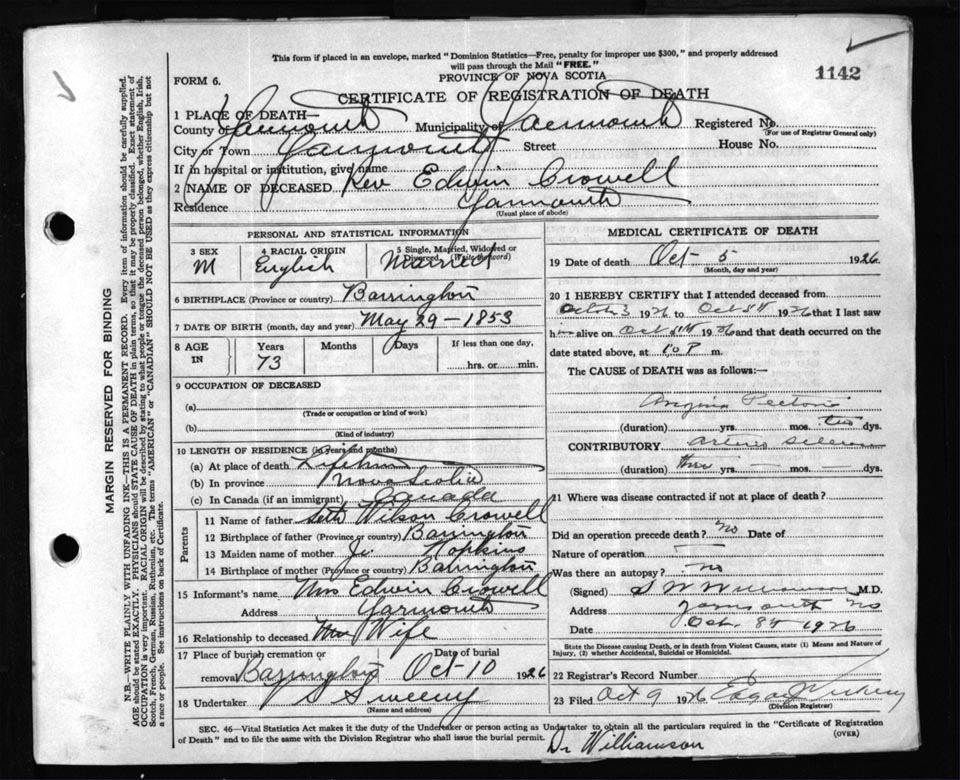 This form if placed in an envelope, marked "Dominion Statistics—Free, penalty for improper use $300," and properly addressed
will pass through the Mail "FREE."
1142
FORM 6.
PROVINCE OF NOVA SCOTIA
CERTIFICATE OF REGISTRATION OF DEATH
1 PLACE OF DEATH—
County of Yarmouth Municipality of Yarmouth Registered No.
(For use of Registrar General only)
City or Town Yarmouth Street House No.
If in hospital or institution, give name
2 NAME OF DECEASED Rev Edwin Crowell
Residence Yarmouth
(Usual place of abode)
PERSONAL AND STATISTICAL INFORMATION
3 SEX M
4 RACIAL ORIGIN English
5 Single, Married, Widowed or Divorced (Write the word) Married
6 BIRTHPLACE (Province or country) Barrington
7 DATE OF BIRTH (month, day and year) May 29 - 1853
8 AGE IN Years 73 Months Days If less than one day, hrs. or min.
9 OCCUPATION OF DECEASED
(a)
(Trade or occupation or kind of work)
(b)
(Kind of industry)
10 LENGTH OF RESIDENCE (in years and months)
(a) At place of death
(b) In province Nova Scotia
(c) In Canada (if an immigrant) Canada
Parents
11 Name of father Seth Wilson Crowell
12 Birthplace of father (Province or country) Barrington
13 Maiden name of mother Hopkins
14 Birthplace of mother (Province or country) Barrington
15 Informant's name Mrs Edwin Crowell
Address Yarmouth
16 Relationship to deceased Wife
17 Place of burial cremation or removal Barrington Date of burial Oct 10 1926
18 Undertaker Sweeny
(Name and address)
MEDICAL CERTIFICATE OF DEATH
19 Date of death Oct 5 1926
(Month, day and year)
20 I HEREBY CERTIFY that I attended deceased from
October 3 1926 to Oct 5th 1926 that I last saw
him alive on Oct 5th 1926 and that death occurred on
date stated above, at P m.
The CAUSE of DEATH was as follows:—
Angina Pectoris
(duration) yrs. mos. two dys.
CONTRIBUTORY
(duration) three yrs. — mos. — dys.
21 Where was disease contracted if not at place of death?
Did an operation precede death? no Date of
Nature of operation —
Was there an autopsy? no
(Signed) Williamson M.D.
Address Yarmouth NS
Date Oct. 8th 1926
State the Disease causing Death, or in death from Violent Causes, state (1) Means and Nature of
Injury, (2) whether Accidental, Suicidal or Homicidal.
22 Registrar's Record Number
23 Filed Oct 9 1926 Edgar
(Division Registrar)
SEC. 46—Vital Statistics Act makes it the duty of the Undertaker or person acting as Undertaker to obtain all the particulars required in the "Certificate of Registration
of Death" and to file the same with the Division Registrar who shall issue the burial permit.
(OVER)
Dr Williamson
MARGIN RESERVED FOR BINDING
N.B.—WRITE PLAINLY WITH UNFADING INK—THIS IS A PERMANENT RECORD. Every item of information should be carefully supplied.
AGE should be stated EXACTLY. PHYSICIANS should STATE CAUSE OF DEATH in plain terms, so that it may be properly classified. Exact statement of
OCCUPATION is very important. RACIAL ORIGIN will be described by stating to what people or tongue the deceased person belonged, whether English, Irish,
Scotch, French, German, Russian, Ruthenian, etc. The terms "AMERICAN" or "CANADIAN" SHOULD NOT BE USED as they express citizenship but not
a race or people. See instructions on back of Certificate.